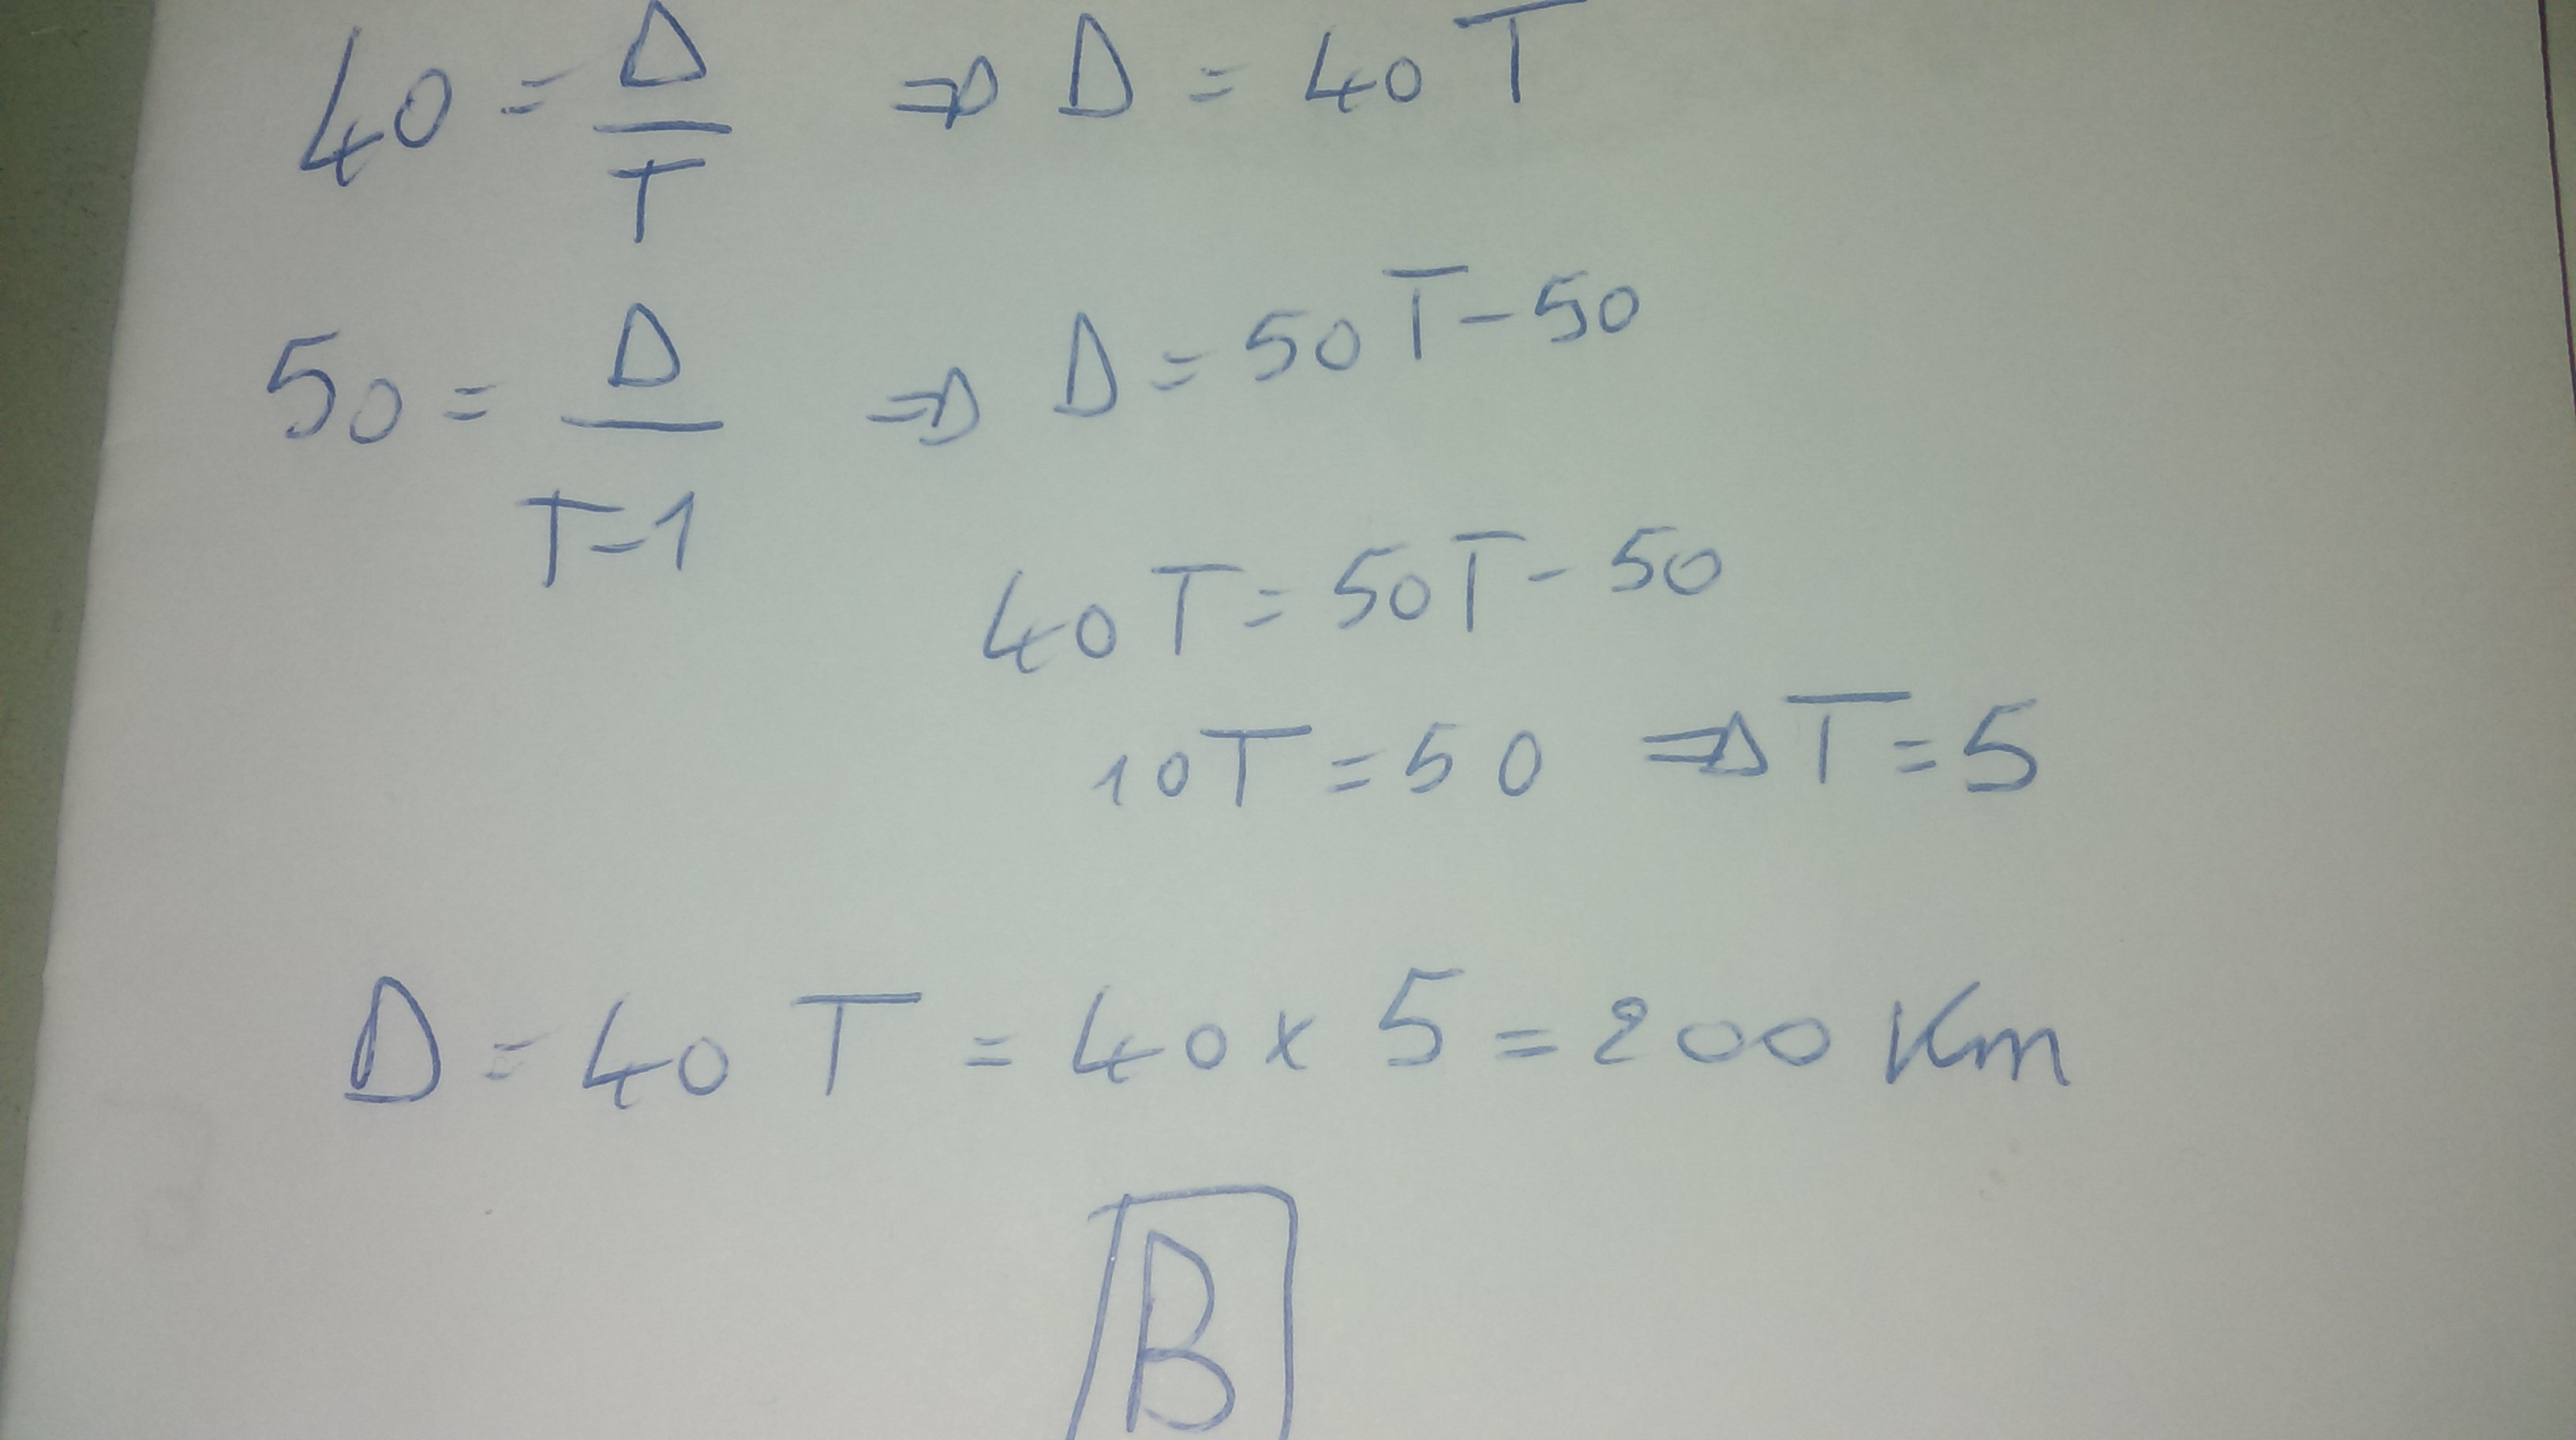 40 = D/T ⇒ D = 40T
50 = D/T-1 ⇒ D = 50T-50
40T = 50T - 50
10T = 50 ⇒ T = 5
D = 40T = 40 x 5 = 200 Km
B